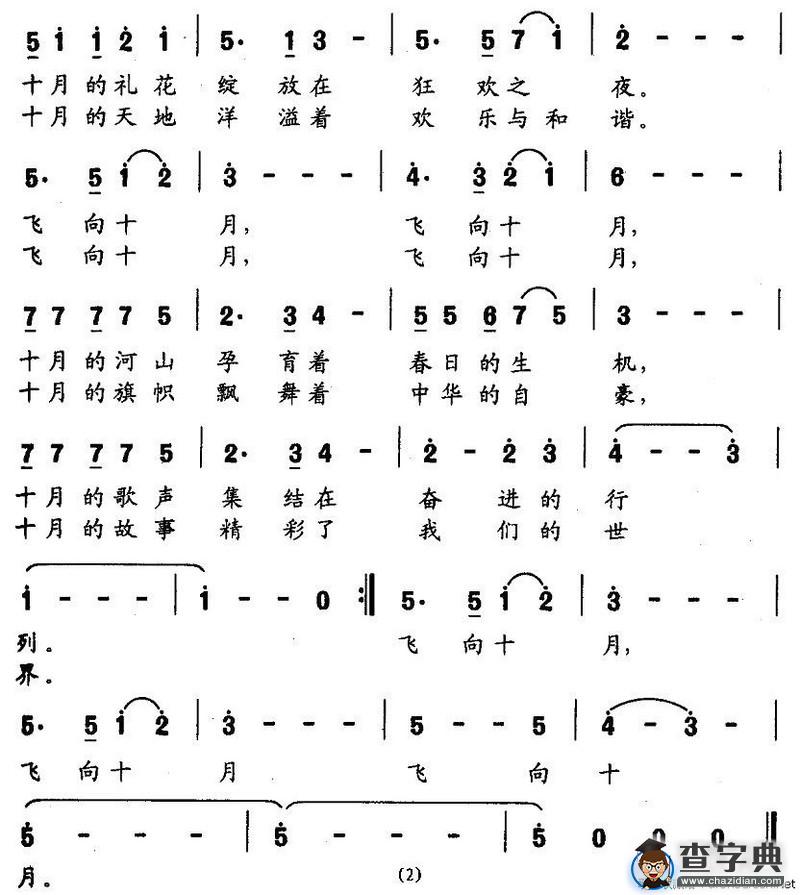 5 i i 2 i | 5· 1 3 - | 5· 5 7 i | 2 - - - |
十月的礼花 绽 放在 狂 欢之 夜。
十月的天地 洋 溢着 欢 乐与和 谐。
5· 5 i 2 | 3 - - - | 4· 3 2 i | 6 - - - |
飞 向十 月, 飞 向十 月,
飞 向十 月, 飞 向十 月,
7 7 7 7 5 | 2· 3 4 - | 5 5 6 7 5 | 3 - - - |
十月的河山 孕 育着 春日的生 机,
十月的旗帜 飘 舞着 中华的自 豪,
7 7 7 7 5 | 2· 3 4 - | 2 - 2 3 | 4 - - 3 |
十月的歌声 集 结在 奋 进的 行
十月的故事 精 彩了 我 们的 世
i - - - | i - - 0 :| 5· 5 i 2 | 3 - - - |
列。 飞 向十 月,
界。
5· 5 i 2 | 3 - - - | 5 - - 5 | 4 - 3 - |
飞 向十 月 飞 向 十
5 - - - | 5 - - - | 5 0 0 0 ‖
月。
(2)
查字典
www.chazidian.com